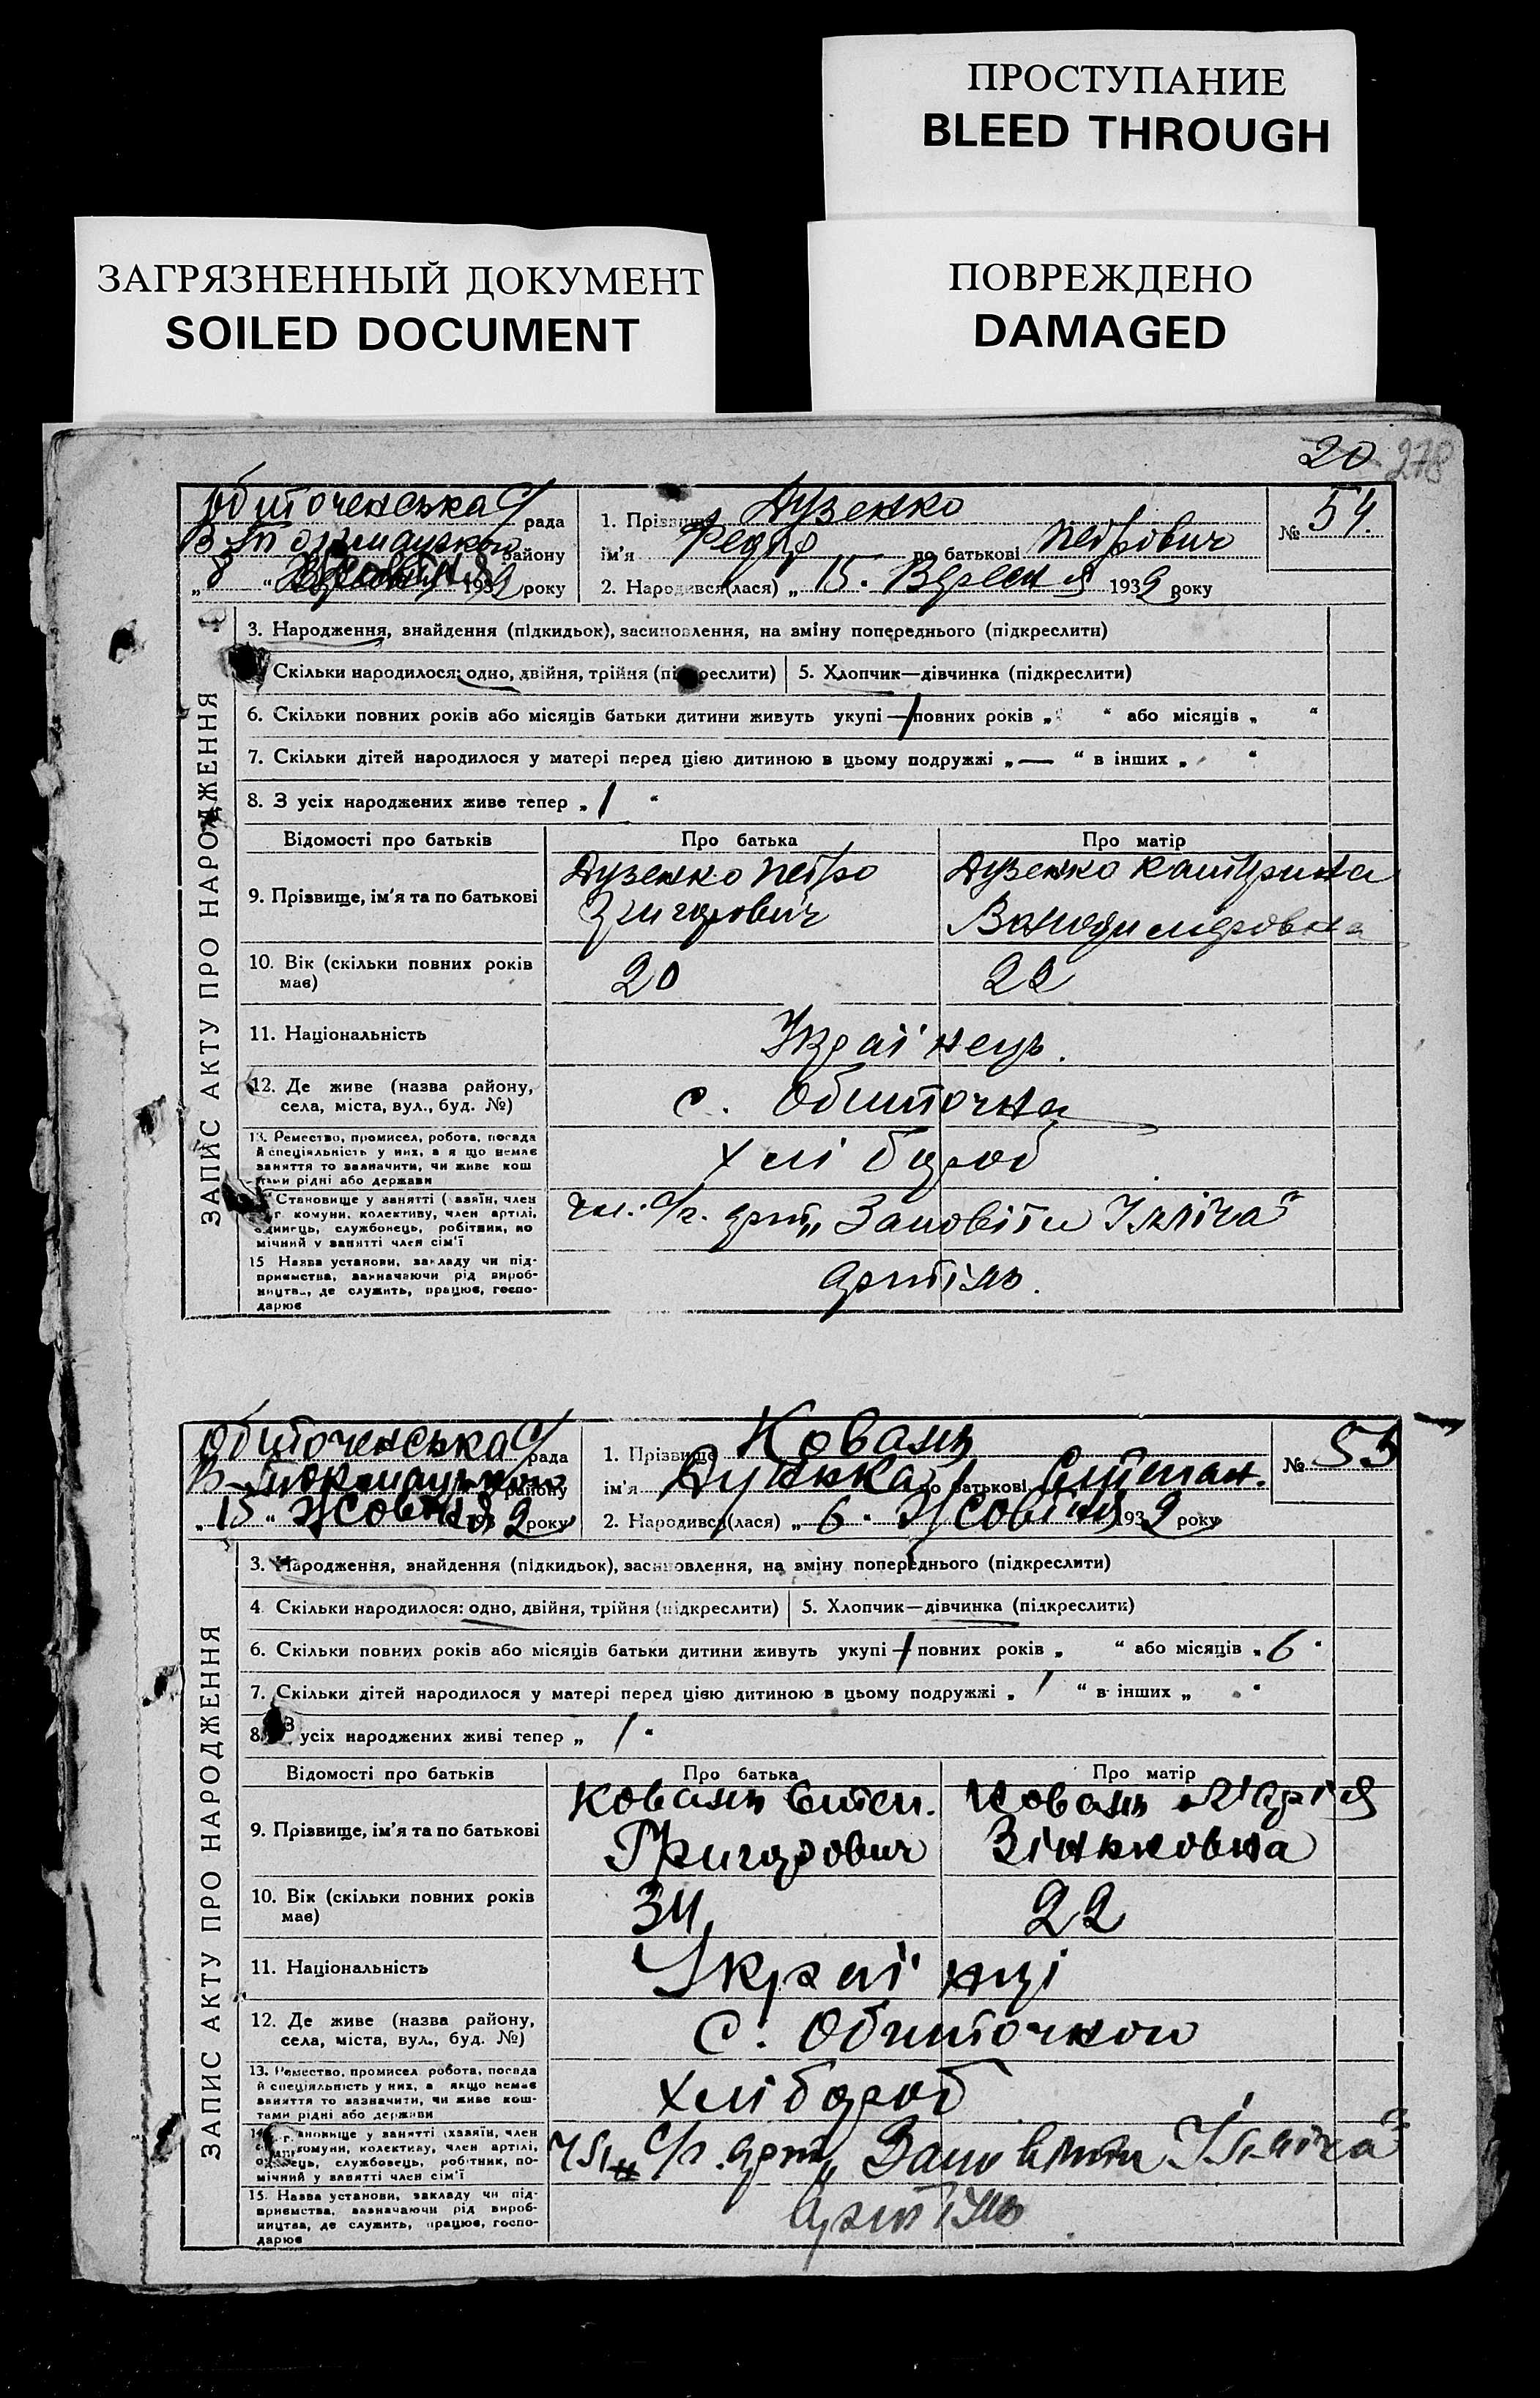 ПРОСТУПАНИЕ
BLEED THROUGH
ЗАГРЯЗНЕННЫЙ ДОКУМЕНТ
SOILED DOCUMENT
ПОВРЕЖДЕНО
DAMAGED
20 278
ЗАПИС АКТУ ПРО НАРОДЖЕННЯ
Обиточенська с/рада
В-Токмацького району
„8“ Жовтня 1939 року
1. Прізвище Дузенко
ім'я Федір по батькові Петрович
2. Народився(лася) „15. Вересня 1939 року
№ 54.
3. Народження, знайдення (підкидьок), засиновлення, на зміну попереднього (підкреслити)
Скільки народилося: одно, двійня, трійня (підкреслити) 5. Хлопчик—дівчинка (підкреслити)
6. Скільки повних років або місяців батьки дитини живуть укупі — повних років „ “ або місяців „ “
7. Скільки дітей народилося у матері перед цією дитиною в цьому подружжі „— “ в інших „ “
8. З усіх народжених живе тепер „1“
Відомості про батьків Про батька Про матір
9. Прізвище, ім'я та по батькові Дузенко Петро Григорович Дузенко Катерина Володимировна
10. Вік (скільки повних років має) 20 22
11. Національність Українець.
12. Де живе (назва району, села, міста, вул., буд. №) с. Обиточна
13. Ремество, промисел, робота, посада й спеціяльність у них, а я що немає заняття то зазначити, чи живе кош тами рідні або держави хлібороб
Становище у занятті (хазяїн, член с.-г. комуни, колективу, член артілі, одинець, службовець, робітник, по мічний у занятті член сім'ї чл. с/г. арт „Заповіти Ілліча“
15 Назва установи, закладу чи під-приємства, зазначаючи рід вироб-ництва, де служить, працює, госпо-дарює артіль.
ЗАПИС АКТУ ПРО НАРОДЖЕННЯ
Обиточенська с/рада
В-Токмацького району
„15“ Жовтня 1932 року
1. Прізвище Коваль
ім'я по батькові Степан.
2. Народився(лася) „6“ Жовтня 1932 року
№ 55
3. Народження, знайдення (підкидьок), засиновлення, на зміну попереднього (підкреслити)
4. Скільки народилося: одно, двійня, трійня (підкреслити) 5. Хлопчик—дівчинка (підкреслити)
6. Скільки повних років або місяців батьки дитини живуть укупі — повних років „ “ або місяців „6“
7. Скільки дітей народилося у матері перед цією дитиною в цьому подружжі „ “ в інших „ “
8. З усіх народжених живі тепер „1“
Відомості про батьків Про батька Про матір
9. Прізвище, ім'я та по батькові Коваль Степ. Григорович Коваль Марія Зіньковна
10. Вік (скільки повних років має) 34 22
11. Національність Українці
12. Де живе (назва району, села, міста, вул., буд. №) С. Обиточною
13. Ремество, промисел робота, посада й спеціяльність у них, а якщо немає заняття то зазначити, чи живе кош-тами рідні або держави хлібороб
Становище у занятті (хазяїн, член с.-г. комуни, колективу, член артілі, одинець, службовець, робітник, по-мічний у занятті член сім'ї чл. с/г. арт „Заповіти Ілліча“
15. Назва установи, закладу чи під-приємства, зазначаючи рід вироб-ництва, де служить, працює, госпо-дарює Артіль